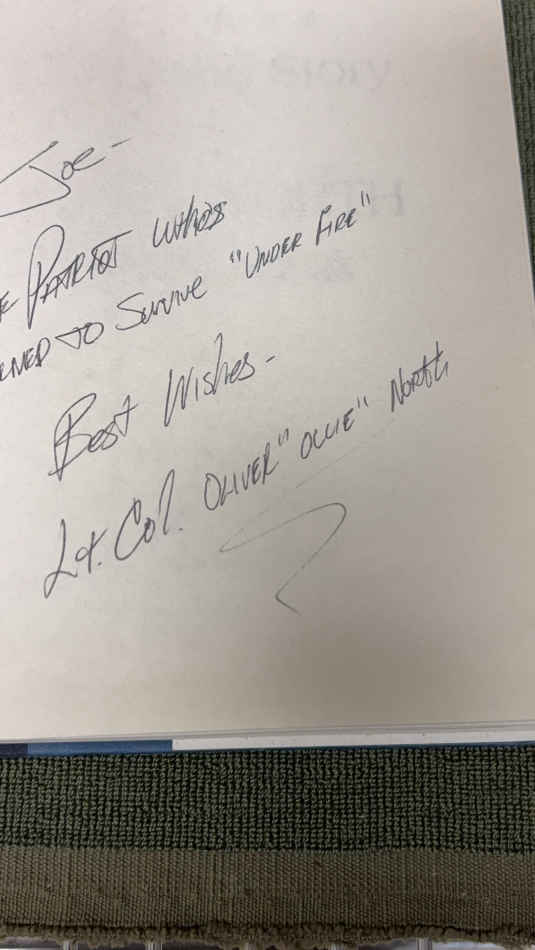 Joe-
PATRIOT WHO'S
TO Survive "UNDER FIRE"
Best Wishes-
Lt. Col. OLIVER "OLLIE" North